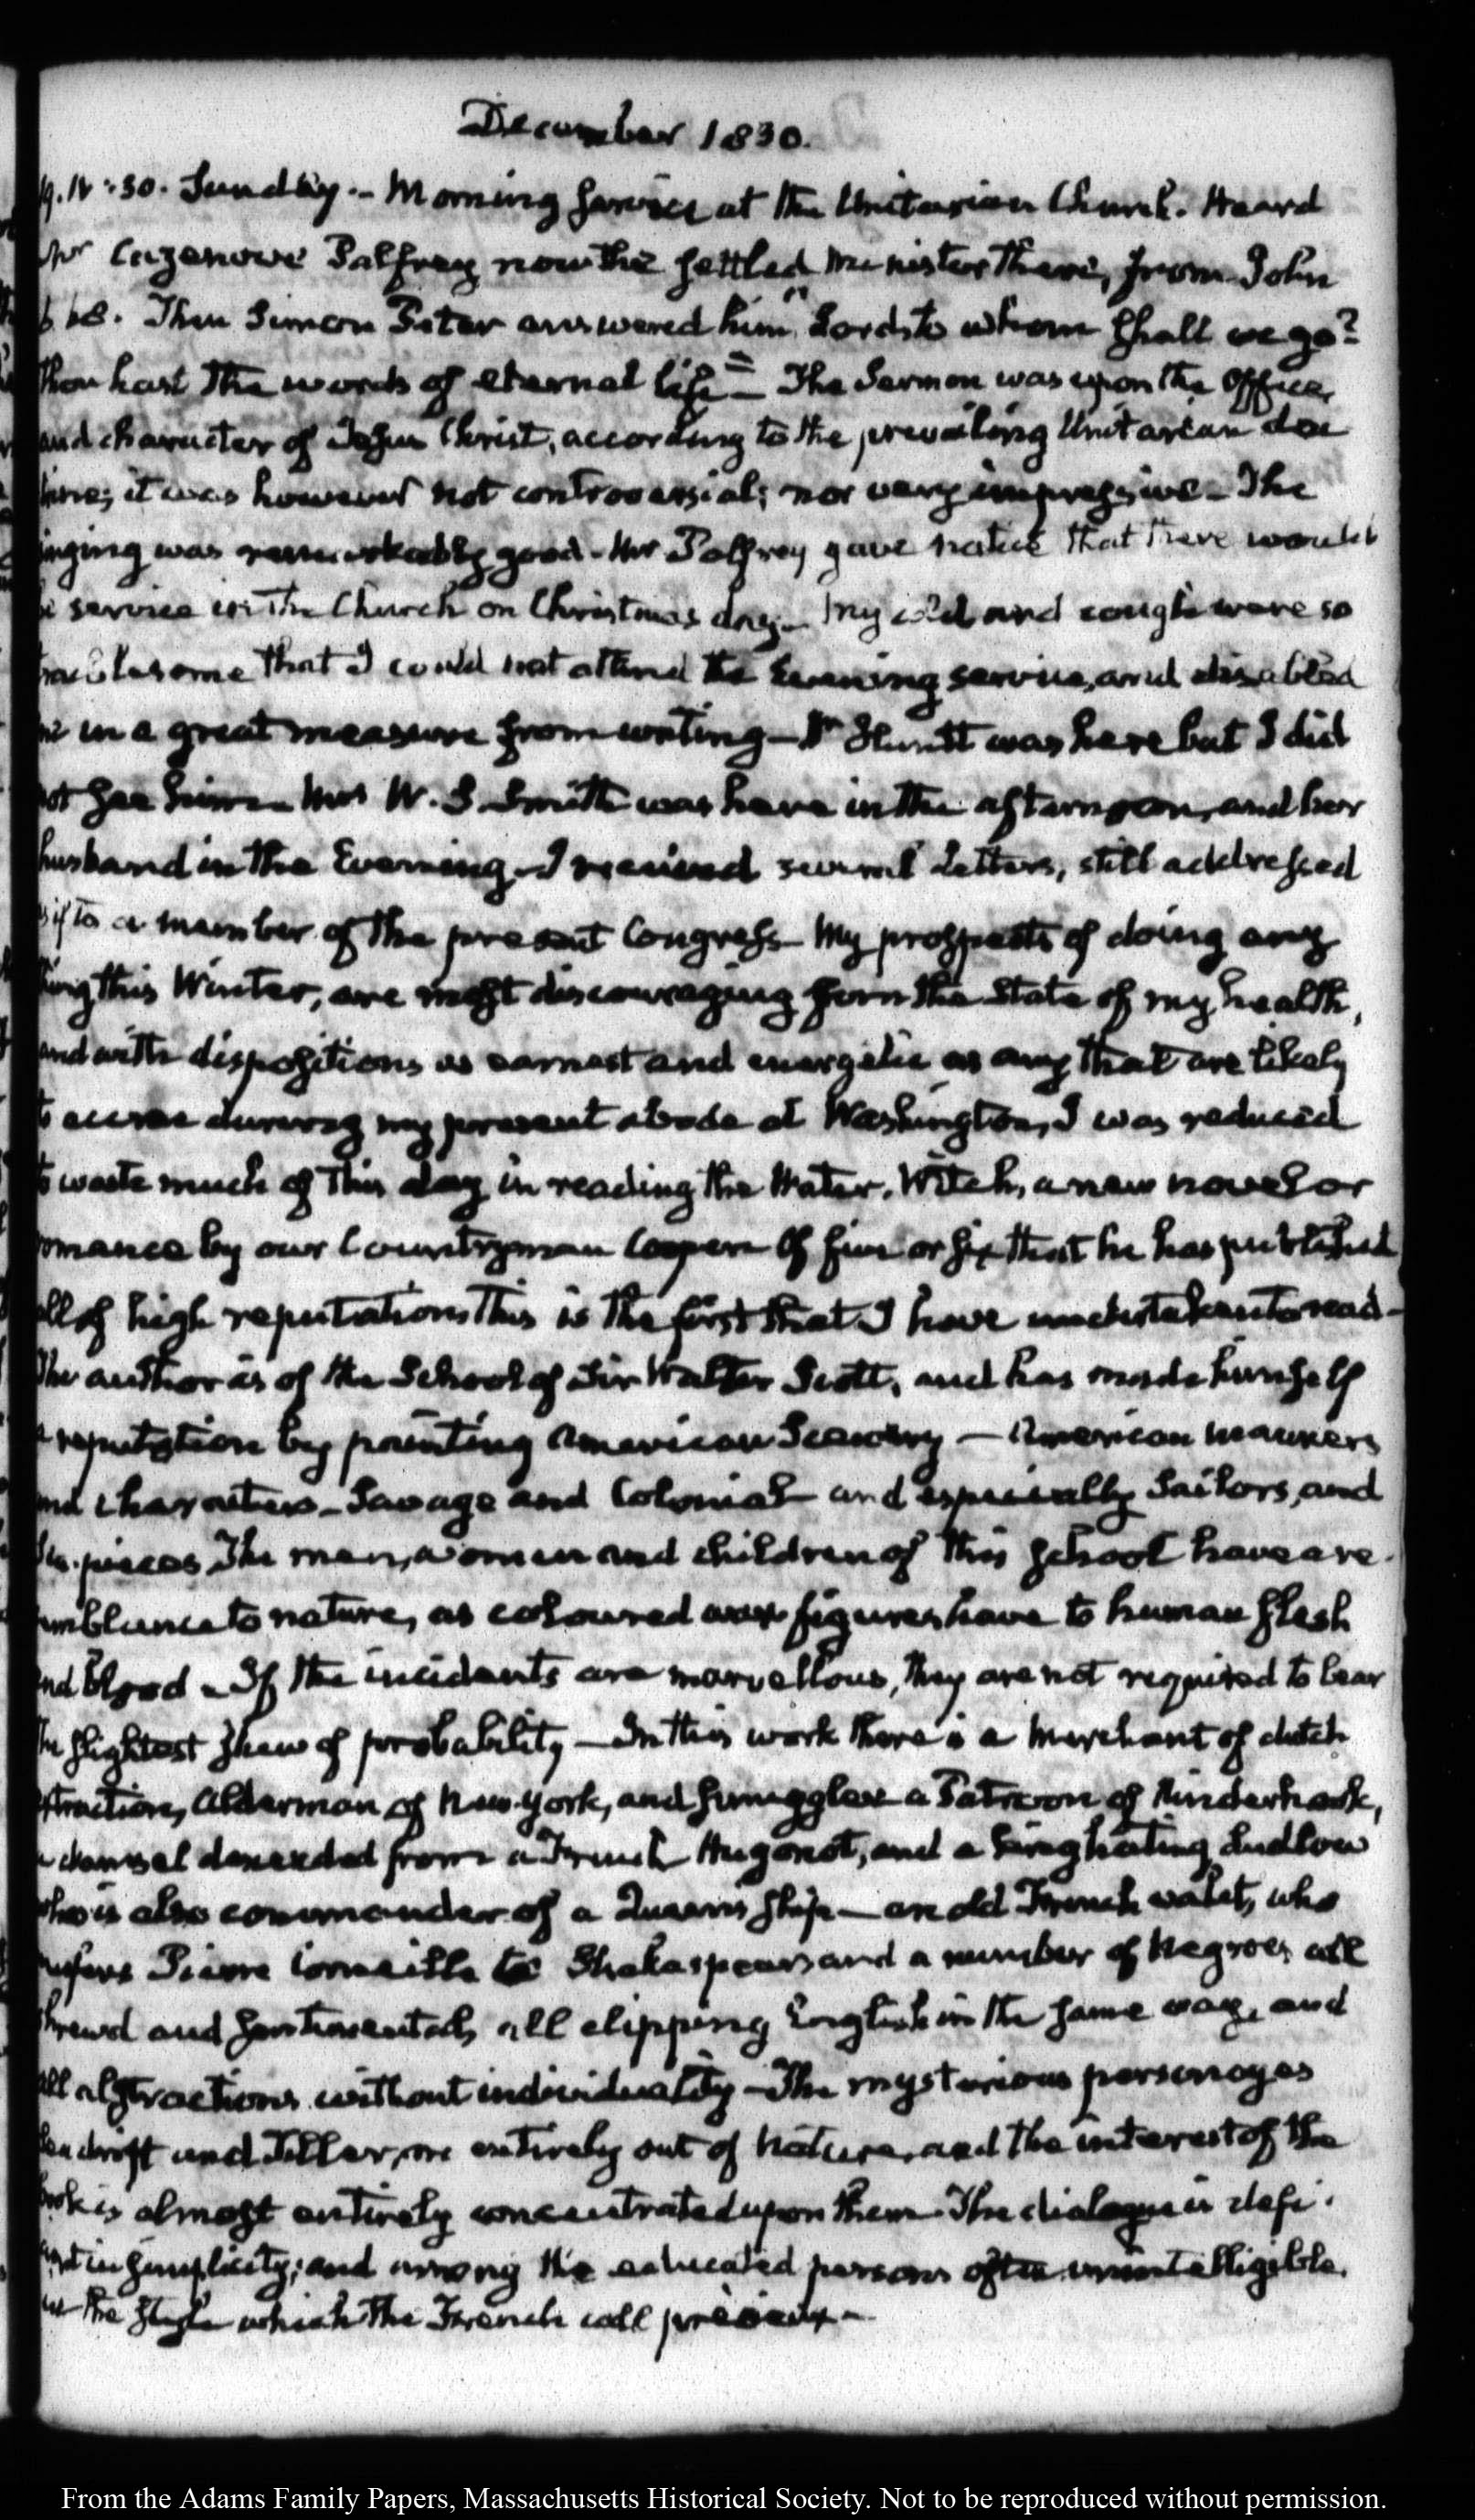 December 1830.
19. IV:30. Sunday.- Morning service at the Unitarian Church. Heard
Mr Cazenove Palfrey now the settled Minister there, from John
6 68. Then Simon Peter answered him "Lord to whom shall we go?
Thou hast the words of eternal life" — The Sermon was upon the Office
and character of Jesus Christ, according to the prevailing Unitarian doc
trine; it was however not controversial; nor very impressive - The
singing was remarkably good - Mr Palfrey gave notice that there would
be service in the Church on Christmas day - My cold and cough were so
troublesome that I could not attend the Evening service, and disabled
me in a great measure from writing — Dr Huntt was here but I did
not see him - Mrs W. S. Smith was here in the afternoon, and her
husband in the Evening. I received several Letters, still addressed
as if to a member of the present Congress - My prospects of doing any
thing this Winter, are most discouraging from the State of my health,
and with dispositions as earnest and energetic as any that are likely
to occur during my present abode at Washington, I was reduced
to waste much of this day in reading the Water-Witch, a new novel or
romance by our Countryman Cooper. Of five or six that he has published
all of high reputation, This is the first that I have undertaken to read -
The author is of the School of Sir Walter Scott, and has made himself
a reputation by painting American Scenery — American manners
and characters - Savage and Colonial and especially Sailors, and
Sea-pieces. The men, women and children of this school have a re-
semblance to nature, as coloured wax figures have to human flesh
and blood - If the incidents are marvellous, they are not required to bear
the slightest shew of probability — In this work there is a Merchant of dutch
extraction, Alderman of New-York, and smuggler a Patroon of Kinderhook,
a damsel descended from a French Hugonot, and a king hating Ludlow
who is also commander of a Queen's ship — an old French valet, who
prefers Pierre Corneille to Shakespear and a number of Negroes all
shrewd and sentimental, all clipping English in the same way, and
all abstractions without individuality - The mysterious personages
Seadrift and Tiller, are entirely out of Nature, and the interest of the
book is almost entirely concentrated upon them. The dialogue is defi-
cient in simplicity; and among the educated persons often unintelligible.
in the style which the French call précieux -
From the Adams Family Papers, Massachusetts Historical Society. Not to be reproduced without permission.